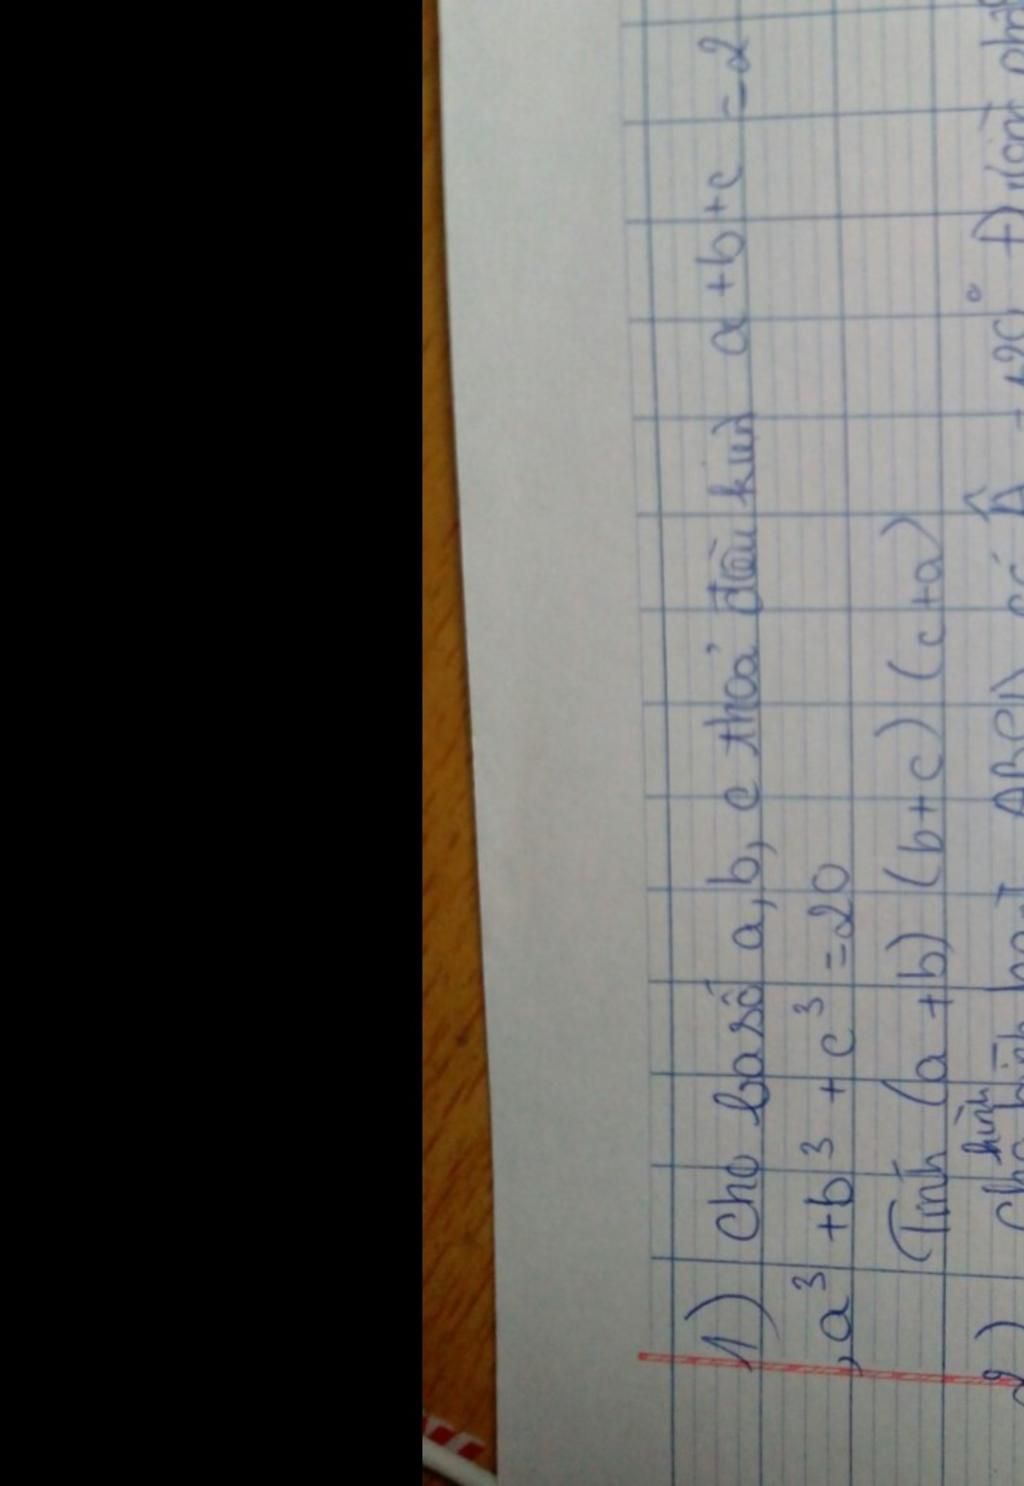 1) Cho ba số a, b, c thoả điều kiện a + b + c = 2
, a³ + b³ + c³ = 20
Tính (a + b) (b + c) (c + a)
hình
2) Cho ABCD có Â = 120°